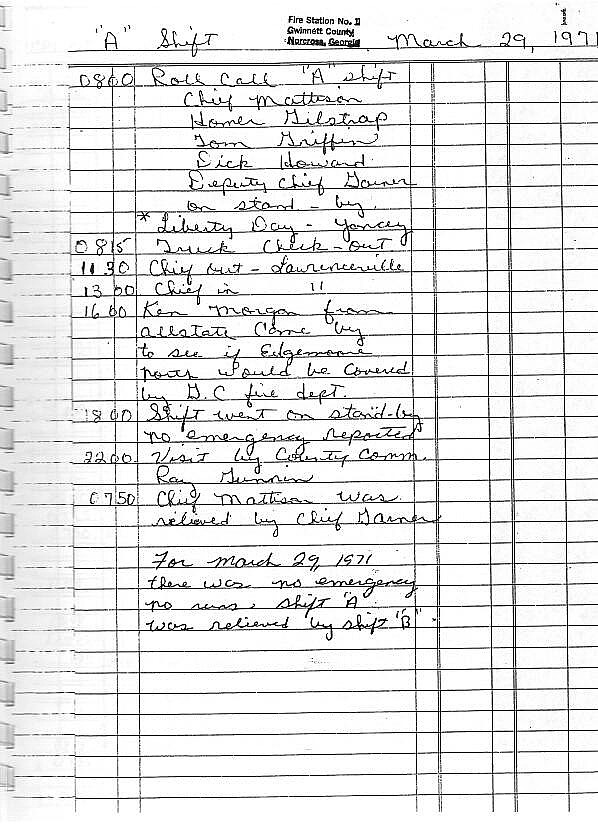 Fire Station No. 1
Gwinnett County
Norcross, Georgia
"A" Shift March 29, 1971
0800 Roll Call "A" shift
Chief Mattison
Homer Gilstrap
Tom Griffin
Dick Howard
Deputy Chief Garner
on stand-by
* Liberty Day - Yancey
0815 Truck Check-out
1130 Chief out - Lawrenceville
1300 Chief in "
1600 Ken Morgan from
allstate Came by
to see if Edgemoore
north would be Covered
by G.C fire dept.
1800 Shift went on stand-by
no emergency reported
2200 Visit by County Comm.
Ray Gunnin
0750 Chief Mattison was
relieved by Chief Garner
For march 29, 1971
there was no emergency
no runs. shift "A"
was relieved by shift "B"